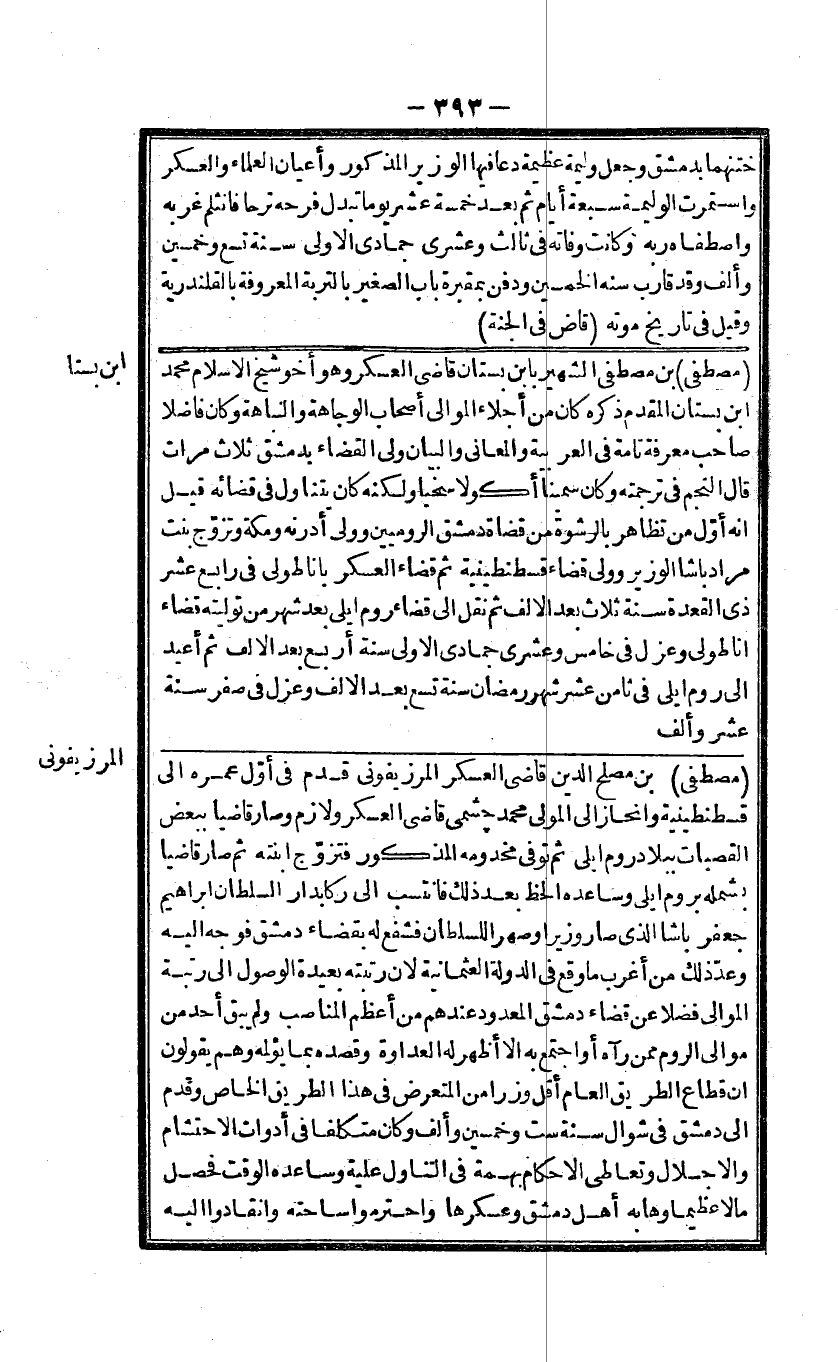 — ٣٩٣ —
ختنهما بدمشق وجعل وليمة عظيمة دعا فيها الوزير المذكور وأعيان العلماء والعسكر
واستمرت الوليمة سبعة أيام ثم بعد خمسة عشر يوما تبدل فرحه ترحا فانثلم غربه
واصطفاه ربه وكانت وفاته فى ثالث وعشرى جمادى الاولى سنة تسع وخمسين
وألف وقد قارب سنه الخمسين ودفن بمقبرة باب الصغير بالتربة المعروفة بالقلندرية
وقيل فى تاريخ موته (قاض فى الجنة)
ابن بستا
(مصطفى) بن مصطفى الشهير بابن بستان قاضى العسكر وهو أخو شيخ الاسلام محمد
ابن بستان المقدم ذكره كان من أجلاء الموالى أصحاب الوجاهة والنباهة وكان فاضلا
صاحب معرفة تامة فى العربية والمعانى والبيان ولى القضاء بدمشق ثلاث مرات
قال النجم فى ترجمته وكان سمينا أكولا سخيا ولكنه كان يتناول فى قضائه قيل
انه أوّل من تظاهر بالرشوة من قضاة دمشق الروميين وولى أدرنه ومكة وتزوّج بنت
مراد باشا الوزير وولى قضاء قسطنطينية ثم قضاء العسكر باناطولى فى رابع عشر
ذى القعدة سنة ثلاث بعد الالف ثم نقل الى قضاء روم ايلى بعد شهر من توليته قضاء
اناطولى وعزل فى خامس وعشرى جمادى الاولى سنة أربع بعد الالف ثم أعيد
الى روم ايلى فى ثامن عشر شهر رمضان سنة تسع بعد الالف وعزل فى صفر سنة
عشر وألف
المرزيفونى
(مصطفى) بن مصلح الدين قاضى العسكر المرزيفونى قدم فى أوّل عمره الى
قسطنطينية وانحاز الى المولى محمد چشمى قاضى العسكر ولازم وصار قاضيا ببعض
القصبات ببلاد روم ايلى ثم توفى مخدومه المذكور فتزوّج ابنته ثم صار قاضيا
بشمله بروم ايلى وساعده الحظ بعد ذلك فانتسب الى ركابدار السلطان ابراهيم
جعفر باشا الذى صار وزيرا وصهرا للسلطان فشفع له بقضاء دمشق فوجه اليه
وعدّ ذلك من أغرب ما وقع فى الدولة العثمانية لان رتبته بعيدة الوصول الى رتبة
الموالى فضلا عن قضاء دمشق المعدود عندهم من أعظم المناصب ولم يبق أحد من
موالى الروم ممن رآه أو اجتمع به الا أظهر له العداوة وقصده بما يؤلمه وهم يقولون
ان قطاع الطريق العام أقل وزرا من المتعرض فى هذا الطريق الخاص وقدم
الى دمشق فى شوال سنة ست وخمسين وألف وكان متكلفا فى أدوات الاحتشام
والاجلال وتعاطى الاحكام بهمة فى التناول علية وساعده الوقت فحصل
مالا عظيما وهابه أهل دمشق وعسكرها واحترموا ساحته وانقادوا اليه